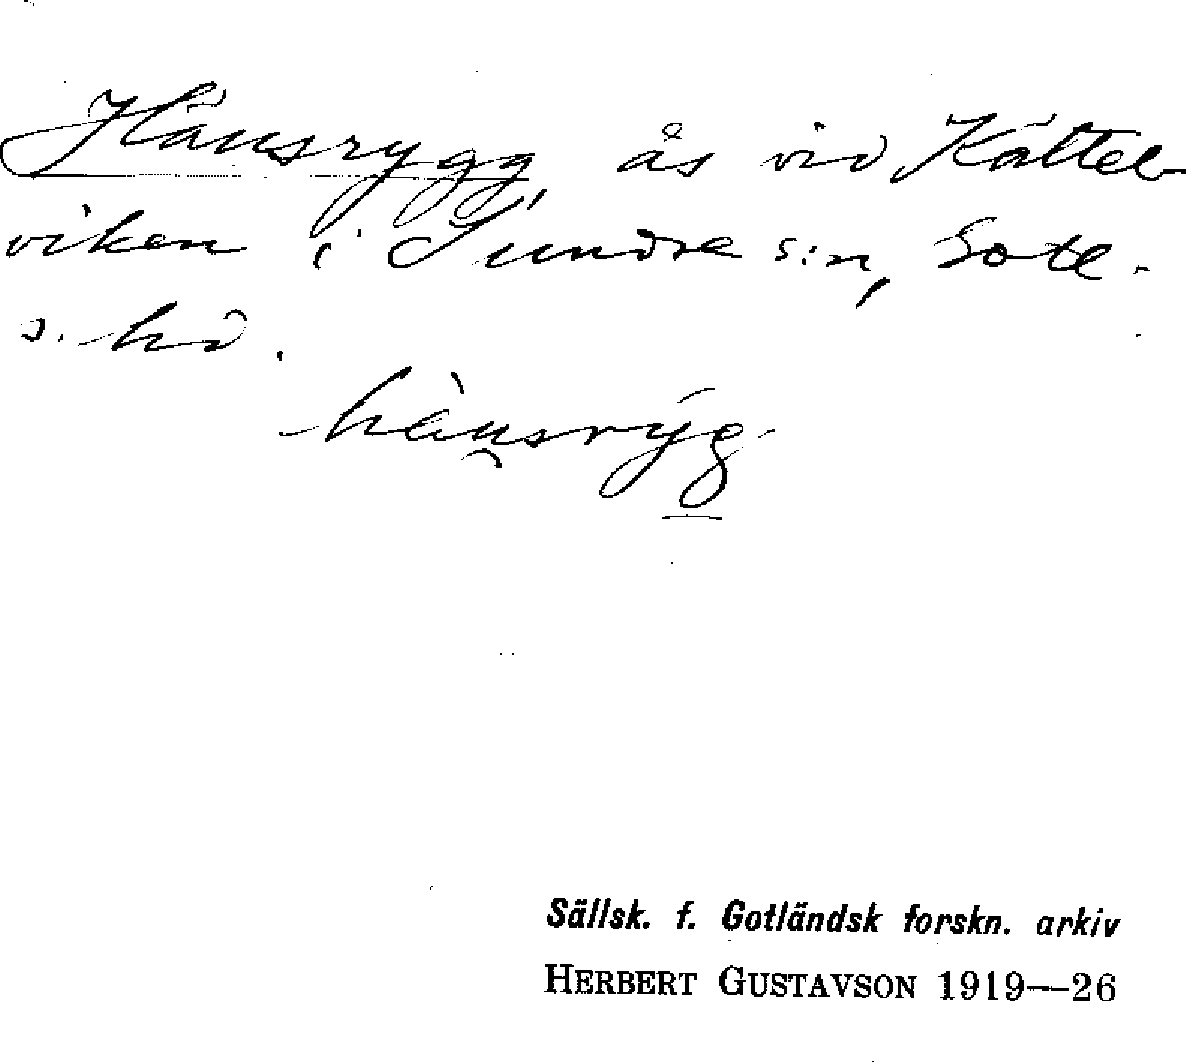 Häusrygg, ås vid Kättel-
viken i Sundre s:n, Gotl.
s. hd.
hä̀u̯srýg
Sällsk. f. Gotländsk forskn. arkiv
HERBERT GUSTAVSON 1919—26